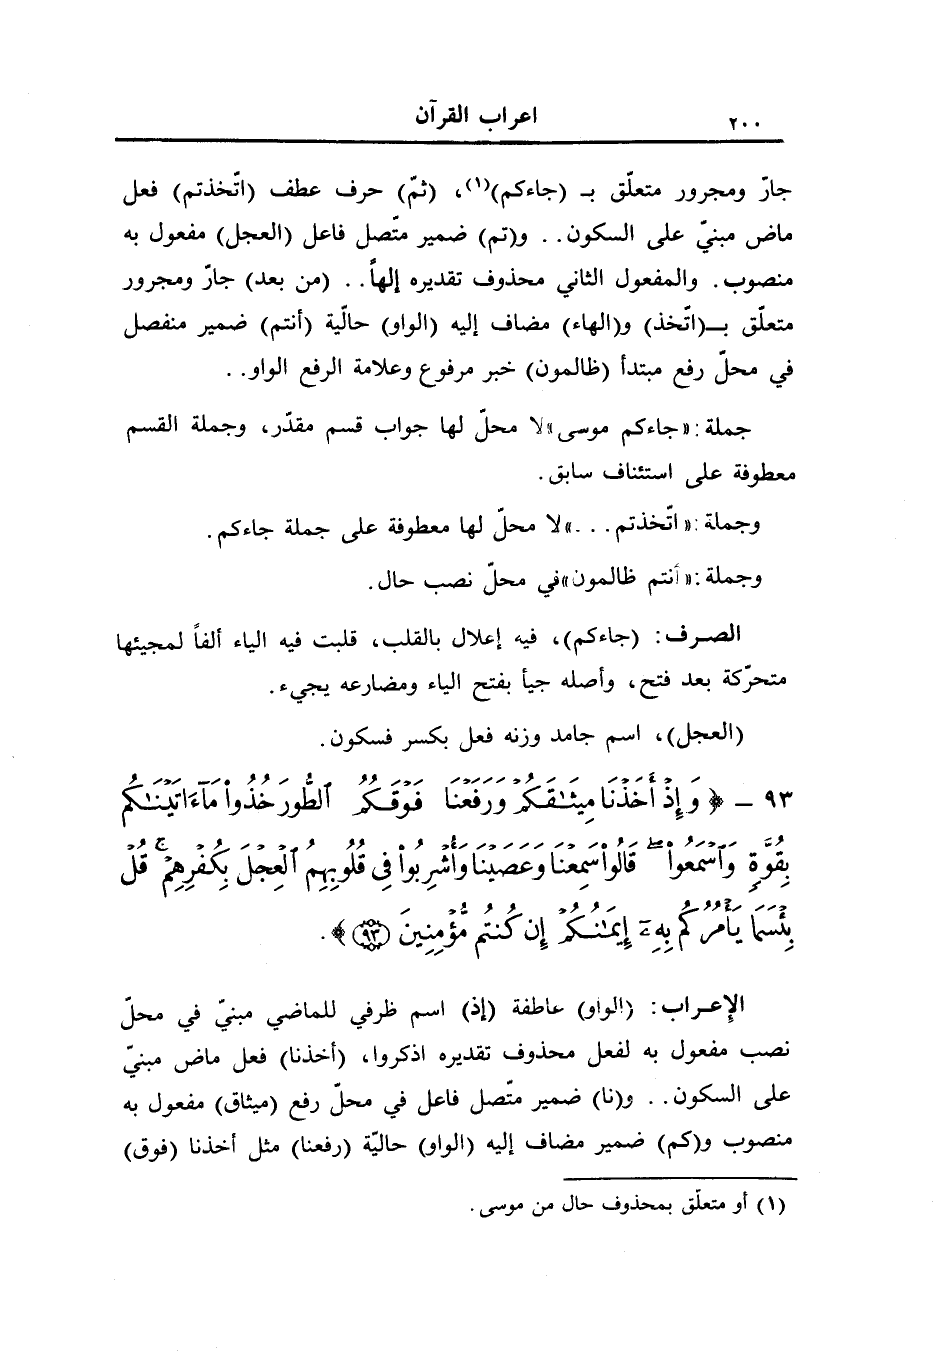 ٢٠٠ اعراب القرآن
جارّ ومجرور متعلّق بـ (جاءكم)(١)، (ثمّ) حرف عطف (اتّخذتم) فعل
ماض مبنيّ على السكون.. و(تم) ضمير متّصل فاعل (العجل) مفعول به
منصوب. والمفعول الثاني محذوف تقديره إلهاً.. (من بعد) جارّ ومجرور
متعلّق بـ(اتّخذ) و(الهاء) مضاف إليه (الواو) حاليّة (أنتم) ضمير منفصل
في محلّ رفع مبتدأ (ظالمون) خبر مرفوع وعلامة الرفع الواو..
جملة: «جاءكم موسى» لا محلّ لها جواب قسم مقدّر، وجملة القسم
معطوفة على استئناف سابق.
وجملة: «اتّخذتم...» لا محلّ لها معطوفة على جملة جاءكم.
وجملة: «أنتم ظالمون» في محلّ نصب حال.
الصرف: (جاءكم)، فيه إعلال بالقلب، قلبت فيه الياء ألفاً لمجيئها
متحرّكة بعد فتح، وأصله جيأ بفتح الياء ومضارعه يجيء.
(العجل)، اسم جامد وزنه فعل بكسر فسكون.
٩٣ – ﴿وَإِذْ أَخَذْنَا مِيثَٰقَكُمْ وَرَفَعْنَا فَوْقَكُمُ ٱلطُّورَ خُذُوا۟ مَآ ءَاتَيْنَٰكُم
بِقُوَّةٍ وَٱسْمَعُوا۟ ۖ قَالُوا۟ سَمِعْنَا وَعَصَيْنَا وَأُشْرِبُوا۟ فِى قُلُوبِهِمُ ٱلْعِجْلَ بِكُفْرِهِمْ ۚ قُلْ
بِئْسَمَا يَأْمُرُكُم بِهِۦٓ إِيمَٰنُكُمْ إِن كُنتُم مُّؤْمِنِينَ ٩٣﴾.
الإعراب: (الواو) عاطفة (إذ) اسم ظرفي للماضي مبنيّ في محلّ
نصب مفعول به لفعل محذوف تقديره اذكروا، (أخذنا) فعل ماض مبنيّ
على السكون.. و(نا) ضمير متّصل فاعل في محلّ رفع (ميثاق) مفعول به
منصوب و(كم) ضمير مضاف إليه (الواو) حاليّة (رفعنا) مثل أخذنا (فوق)
(١) أو متعلّق بمحذوف حال من موسى.